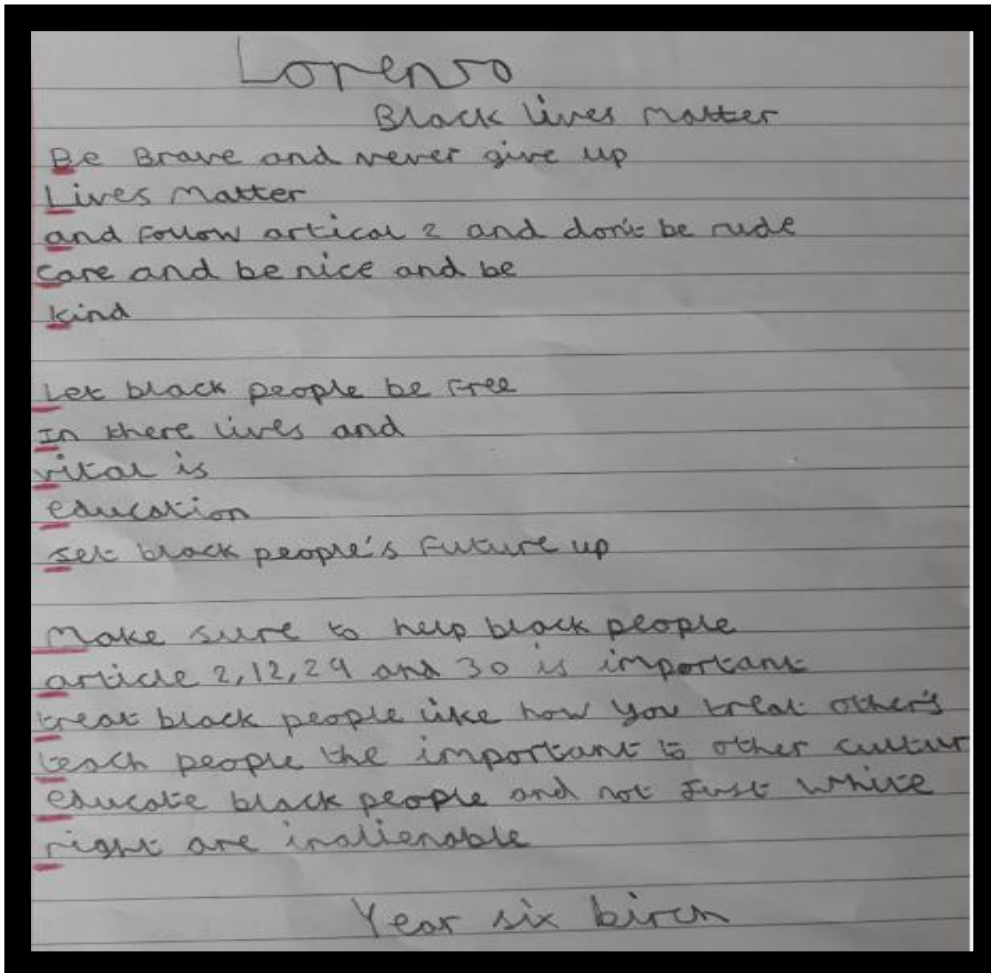 Lorenzo
Black lives matter
Be Brave and never give up
Lives Matter
and Follow artical 2 and don't be rude
care and be nice and be
kind
Let black people be Free
In there lives and
vital is
education
set black people's Future up
Make sure to help black people
article 2,12,29 and 30 is important
treat black people like how you treat other's
teach people the important to other cultur
educate black people and not Just white
right are inalienable
Year six birch